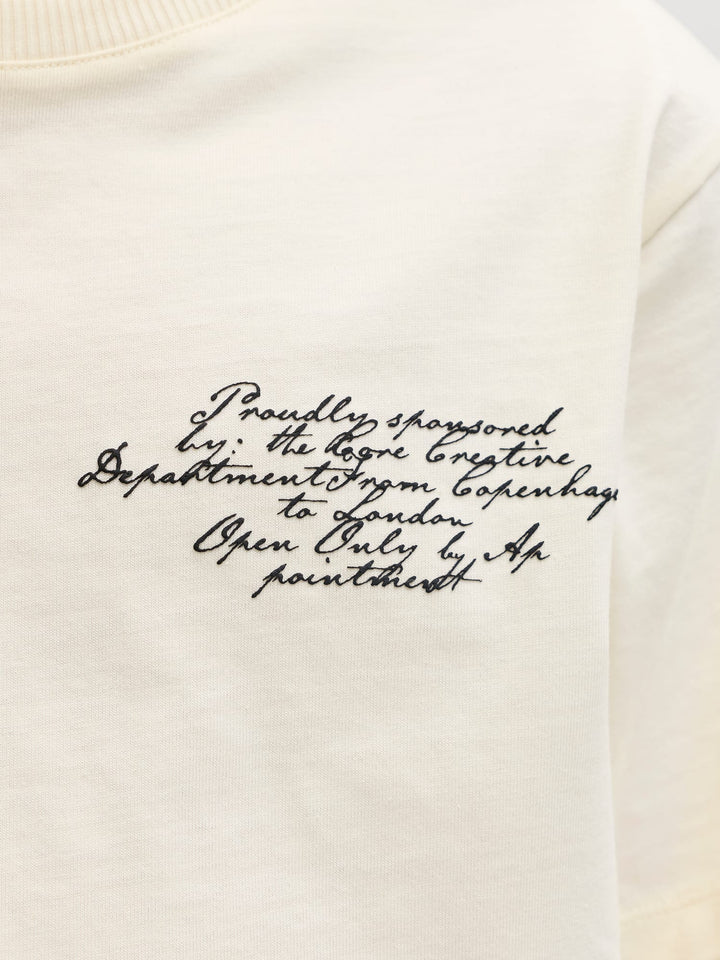 Proudly sponsored
by: the Creative
Department From Copenhage
to London
Open Only by Ap
pointment